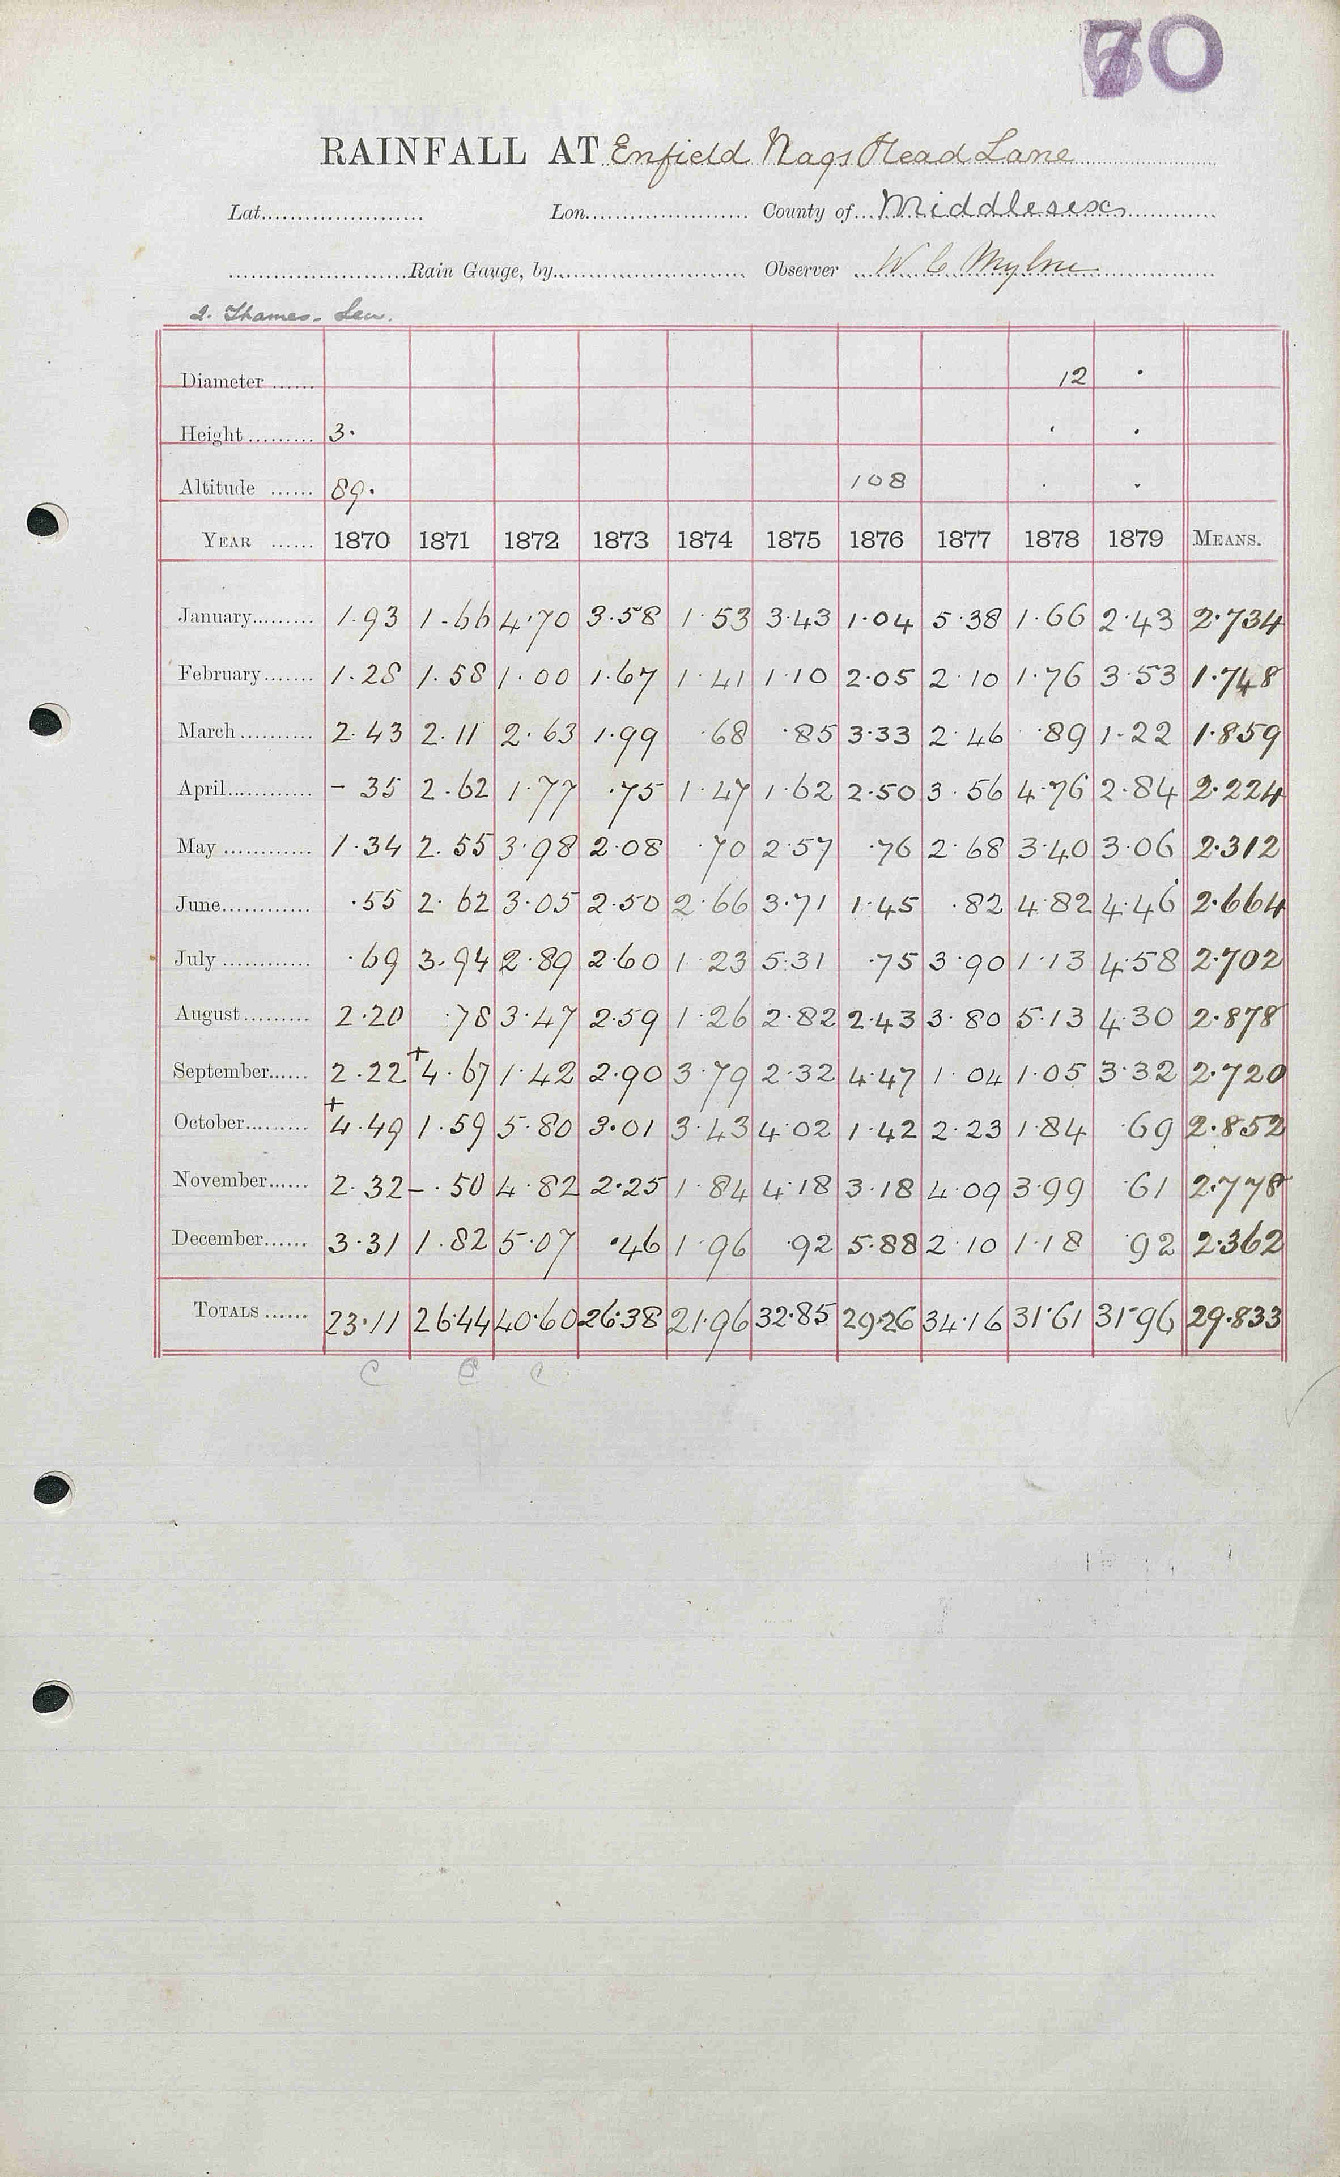 70
RAINFALL AT Enfield Nags Head Lane
Lat. Lon. County of Middlesex
Rain Gauge, by Observer W C Mylne
2. Thames - Lea.
Diameter 12 ·
Height 3. · ·
Altitude 89. 108 · ·
YEAR 1870 1871 1872 1873 1874 1875 1876 1877 1878 1879 MEANS.
January 1.93 1.66 4.70 3.58 1.53 3.43 1.04 5.38 1.66 2.43 2.734
February 1.28 1.58 1.00 1.67 1.41 1.10 2.05 2.10 1.76 3.53 1.748
March 2.43 2.11 2.63 1.99 .68 .85 3.33 2.46 .89 1.22 1.859
April - 35 2.62 1.77 .75 1.47 1.62 2.50 3.56 4.76 2.84 2.224
May 1.34 2.55 3.98 2.08 .70 2.57 .76 2.68 3.40 3.06 2.312
June .55 2.62 3.05 2.50 2.66 3.71 1.45 .82 4.82 4.46 2.664
July .69 3.94 2.89 2.60 1.23 5.31 .75 3.90 1.13 4.58 2.702
August 2.20 .78 3.47 2.59 1.26 2.82 2.43 3.80 5.13 4.30 2.878
September 2.22 +4.67 1.42 2.90 3.79 2.32 4.47 1.04 1.05 3.32 2.720
October +4.49 1.59 5.80 3.01 3.43 4.02 1.42 2.23 1.84 .69 2.852
November 2.32 -.50 4.82 2.25 1.84 4.18 3.18 4.09 3.99 .61 2.778
December 3.31 1.82 5.07 .46 1.96 .92 5.88 2.10 1.18 .92 2.362
TOTALS 23.11 26.44 40.60 26.38 21.96 32.85 29.26 34.16 31.61 31.96 29.833
C C C